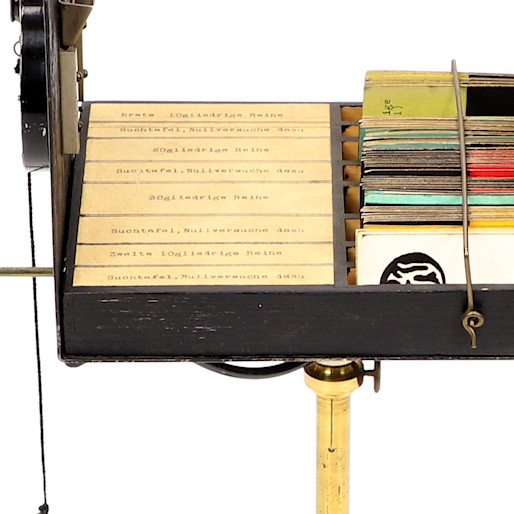 Erste 10gliedrige Reihe
Suchtafel, Nullversuche dazu
20gliedrige Reihe
Suchtafel, Nullversuche dazu
30gliedrige Reihe
Suchtafel, Nullversuche dazu
Zweite 10gliedrige Reihe
Suchtafel, Nullversuche dazu